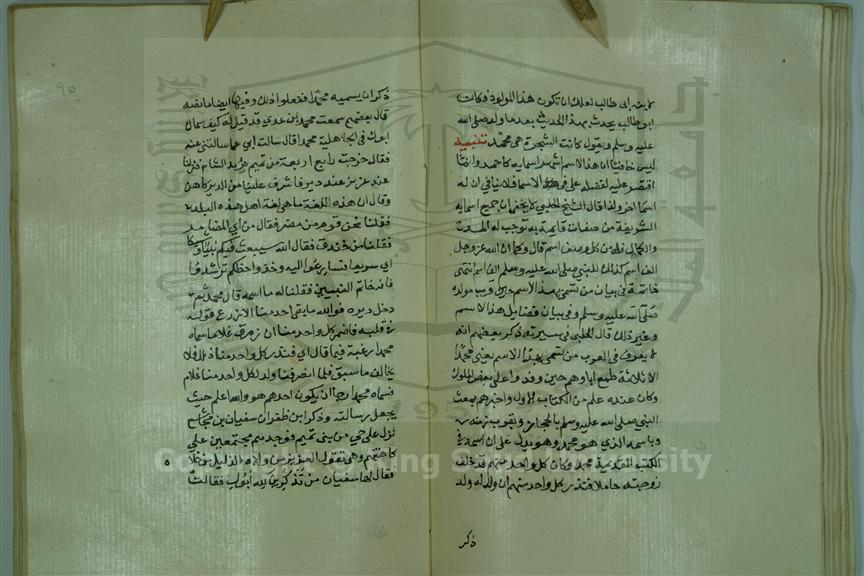 لابعه ابي طالب لعلك ان تكون هذا المولود فكانت
ابو طالب يحدث بهذا الحديث بعد ما ولد صلى الله
عليه وسلم ويقول كانت الشجرة هي محمد تنبيه
ليس خافيا ان هذا الاسم اشهر اسمايه كاحمد وانما
اقتصر عليه لفضله على في هذه الاسما فلا ينافي ان له
اسما اخر ولذا قال الشيخ الحلبي لا يخفى ان جميع اسمايه
الشريفة من صفات قايمة به توجب له المدح
والكمال فله من كل وصف اسم قال وكما ان الله عز وجل
الف اسم كذلك للنبي صلى الله عليه وسلم الف اسم انتهى
خاتمة في بيان من تسمى بهذا الاسم حين قرب مولده
صلى الله عليه وسلم وفي بيان فضايل هذا الاسم
وغير ذلك قال الحلبي في سيرته ذكر بعضهم انه
لا يعرف في العرب من تسمى بهذا الاسم يعني محمدا
الا ثلاثة طمع اباوهم حين وفدوا على بعض الملوك
وكان عنده علم من الكتاب الاول واخبرهم بمبعث
النبي صلى الله عليه وسلم بالحجاز وبقرب زمنه
وباسمه الذي هو محمد وهو يدل على ان اسمه في
الكتب القديمة محمد وكان كل واحد منهم قد خلف
زوجته حاملا فنذر كل واحد منهم ان ولد له ولد
ذكر
٩٥
ذكر ان يسميه محمدا ففعلوا ذلك وفيها ايضا ما نصه
قال بعضهم سمعت محمد بن عدي قد قيل له كيف سماك
ابوك في الجاهلية محمدا قال سالت ابي عما سالتني عنه
فقال خرجت رابع اربعة من تميم نريد الشام فنزلنا
عند غدير عند دير فاشرف علينا من الدير كاهن
وقال ان هذه اللغة ما هي لغة اهل هذه البلد
فقلنا نحن قوم من مضر فقال من اي المضاير
فقلنا من خندف فقال الله سيبعث فيكم نبيا وشيكا
اي سريعا فتسارعوا اليه وخذوا حظكم ترشدوا
فانه خاتم النبيين فقلنا له ما اسمه قال محمد ثم
دخل ديره فوالله ما بقي احد منا الا زرع قوله
في قلبه فاضمر كل واحد منا ان رزق غلاما سماه
محمدا رغبة فيما قال اي فنذر كل واحد منا ذلك فلا
يخالف ما سبق فلما انصرفنا ولد لكل واحد منا غلام
فسماه محمدا رجا ان يكون احدهم هو والله اعلم حيث
يجعل رسالته وذكر ابن ظفر ان سفيان بن مجاشع
نزل على حي من بني تميم فوجدهم مجتمعين على
كاهنتهم وهي تقول العزيز من والاه والذليل من خلاه
فقال لها سفيان من تذكرين لله ابوك فقالت